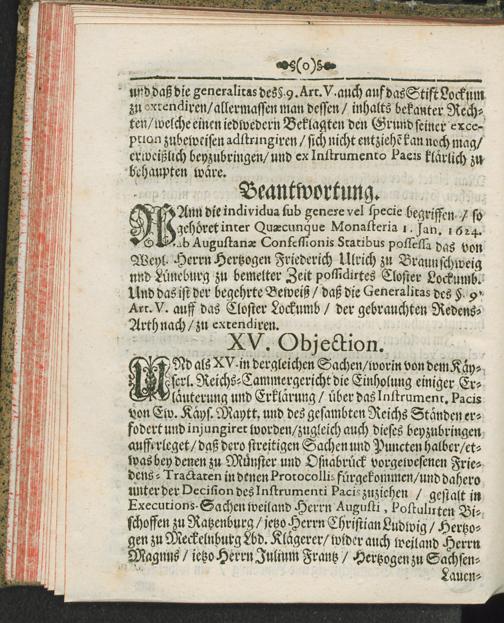 §(0)§
und daß die generalitas des §. 9. Art. V. auch auf das Stift Lockum
zu extendiren/ allermassen man dessen / inhalts bekanter Rech-
ten/ welche einen iedwedern Beklagten den Grund seiner exce-
ption zubeweisen adstringiren / sich nicht entziehē kan noch mag/
erweißlich beyzubringen/ und ex Instrumento Pacis klärlich zu
behaupten wäre.
Beantwortung.
WAnn die individua sub genere vel specie begriffen / so
gehöret inter Quæcunque Monasteria 1. Jan. 1624.
ab Augustanæ Confessionis Statibus possessa das von
Weyl. Herrn Hertzogen Friederich Ulrich zu Braunschweig
und Lüneburg zu bemelter Zeit possidirtes Closter Lockumb.
Und das ist der begehrte Beweiß / daß die Generalitas des §. 9.
Art. V. auff das Closter Lockumb / der gebrauchten Redens-
Arth nach/ zu extendiren.
XV. Objection.
UNd als XV. in dergleichen Sachen/ worin von dem Käy-
serl. Reichs-Cammergericht die Einholung einiger Er-
läuterung und Erklärung / über das Instrument. Pacis
von Ew. Käys. Maytt. und des gesambten Reichs Ständen er-
fodert und injungiret worden/ zugleich auch dieses beyzubringen
aufferleget / daß dero streitigen Sachen und Puncten halber/ et-
was bey denen zu Münster und Osnabrück vorgewesenen Frie-
dens-Tractaten in denen Protocollis fürgekommen/ und dahero
unter der Decision des Instrumenti Pacis zuziehen / gestalt in
Executions-Sachen weiland Herrn Augusti, Postulirten Bi-
schoffen zu Ratzenburg / ietzo Herrn Christian Ludwig / Hertzo-
gen zu Meckelnburg Lbd. Klägerer/ wider auch weiland Herrn
Magnus / ietzo Herrn Julium Frantz / Hertzogen zu Sachsen-
Lauen-